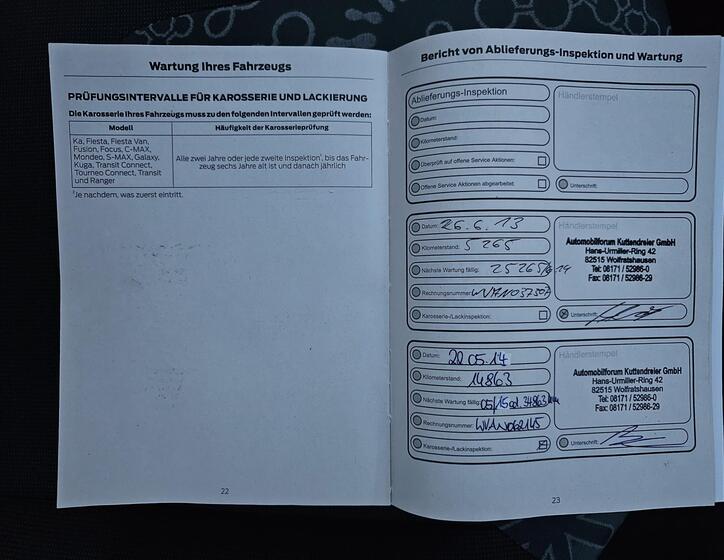 Wartung Ihres Fahrzeugs
PRÜFUNGSINTERVALLE FÜR KAROSSERIE UND LACKIERUNG
Die Karosserie Ihres Fahrzeugs muss zu den folgenden Intervallen geprüft werden:
Modell
Häufigkeit der Karosserieprüfung
Ka, Fiesta, Fiesta Van,
Fusion, Focus, C-MAX,
Mondeo, S-MAX, Galaxy,
Kuga, Transit Connect,
Tourneo Connect, Transit
und Ranger
Alle zwei Jahre oder jede zweite Inspektion¹, bis das Fahr-
zeug sechs Jahre alt ist und danach jährlich
¹Je nachdem, was zuerst eintritt.
22
Bericht von Ablieferungs-Inspektion und Wartung
Ablieferungs-Inspektion
Datum:
Kilometerstand:
Überprüft auf offene Service Aktionen:
Offene Service Aktionen abgearbeitet:
Händlerstempel
Unterschrift:
Datum: 26.6.13
Kilometerstand: 5265
Nächste Wartung fällig: 25265/6.14
Rechnungsnummer:
Karosserie-/Lackinspektion:
Händlerstempel
Automobilforum Kuttendreier GmbH
Hans-Urmiller-Ring 42
82515 Wolfratshausen
Tel: 08171 / 52986-0
Fax: 08171 / 52986-29
Unterschrift:
Datum: 22.05.14
Kilometerstand: 14863
Nächste Wartung fällig: 05/15 od. 34863 km
Rechnungsnummer: WVAN062145
Karosserie-/Lackinspektion:
Händlerstempel
Automobilforum Kuttendreier GmbH
Hans-Urmiller-Ring 42
82515 Wolfratshausen
Tel: 08171 / 52986-0
Fax: 08171 / 52986-29
Unterschrift:
23